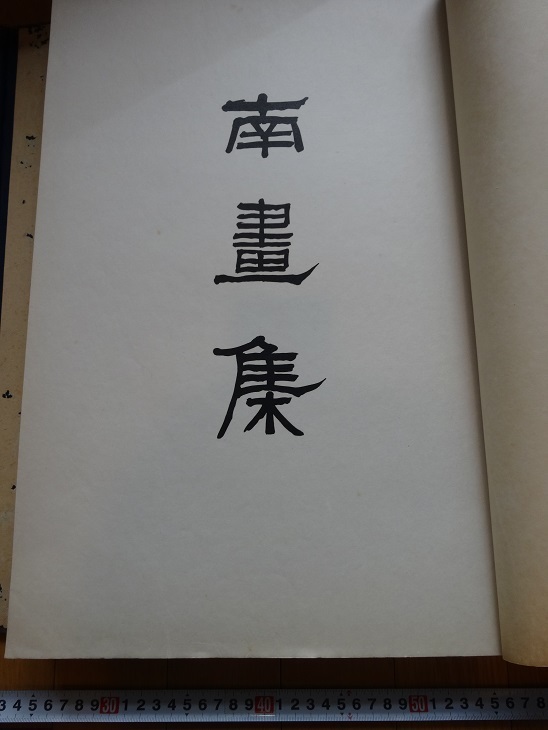 南
畫
集
3 4 5 6 7 8 9 30 1 2 3 4 5 6 7 8 9 40 1 2 3 4 5 6 7 8 9 50 1 2 3 4 5 6 7 8